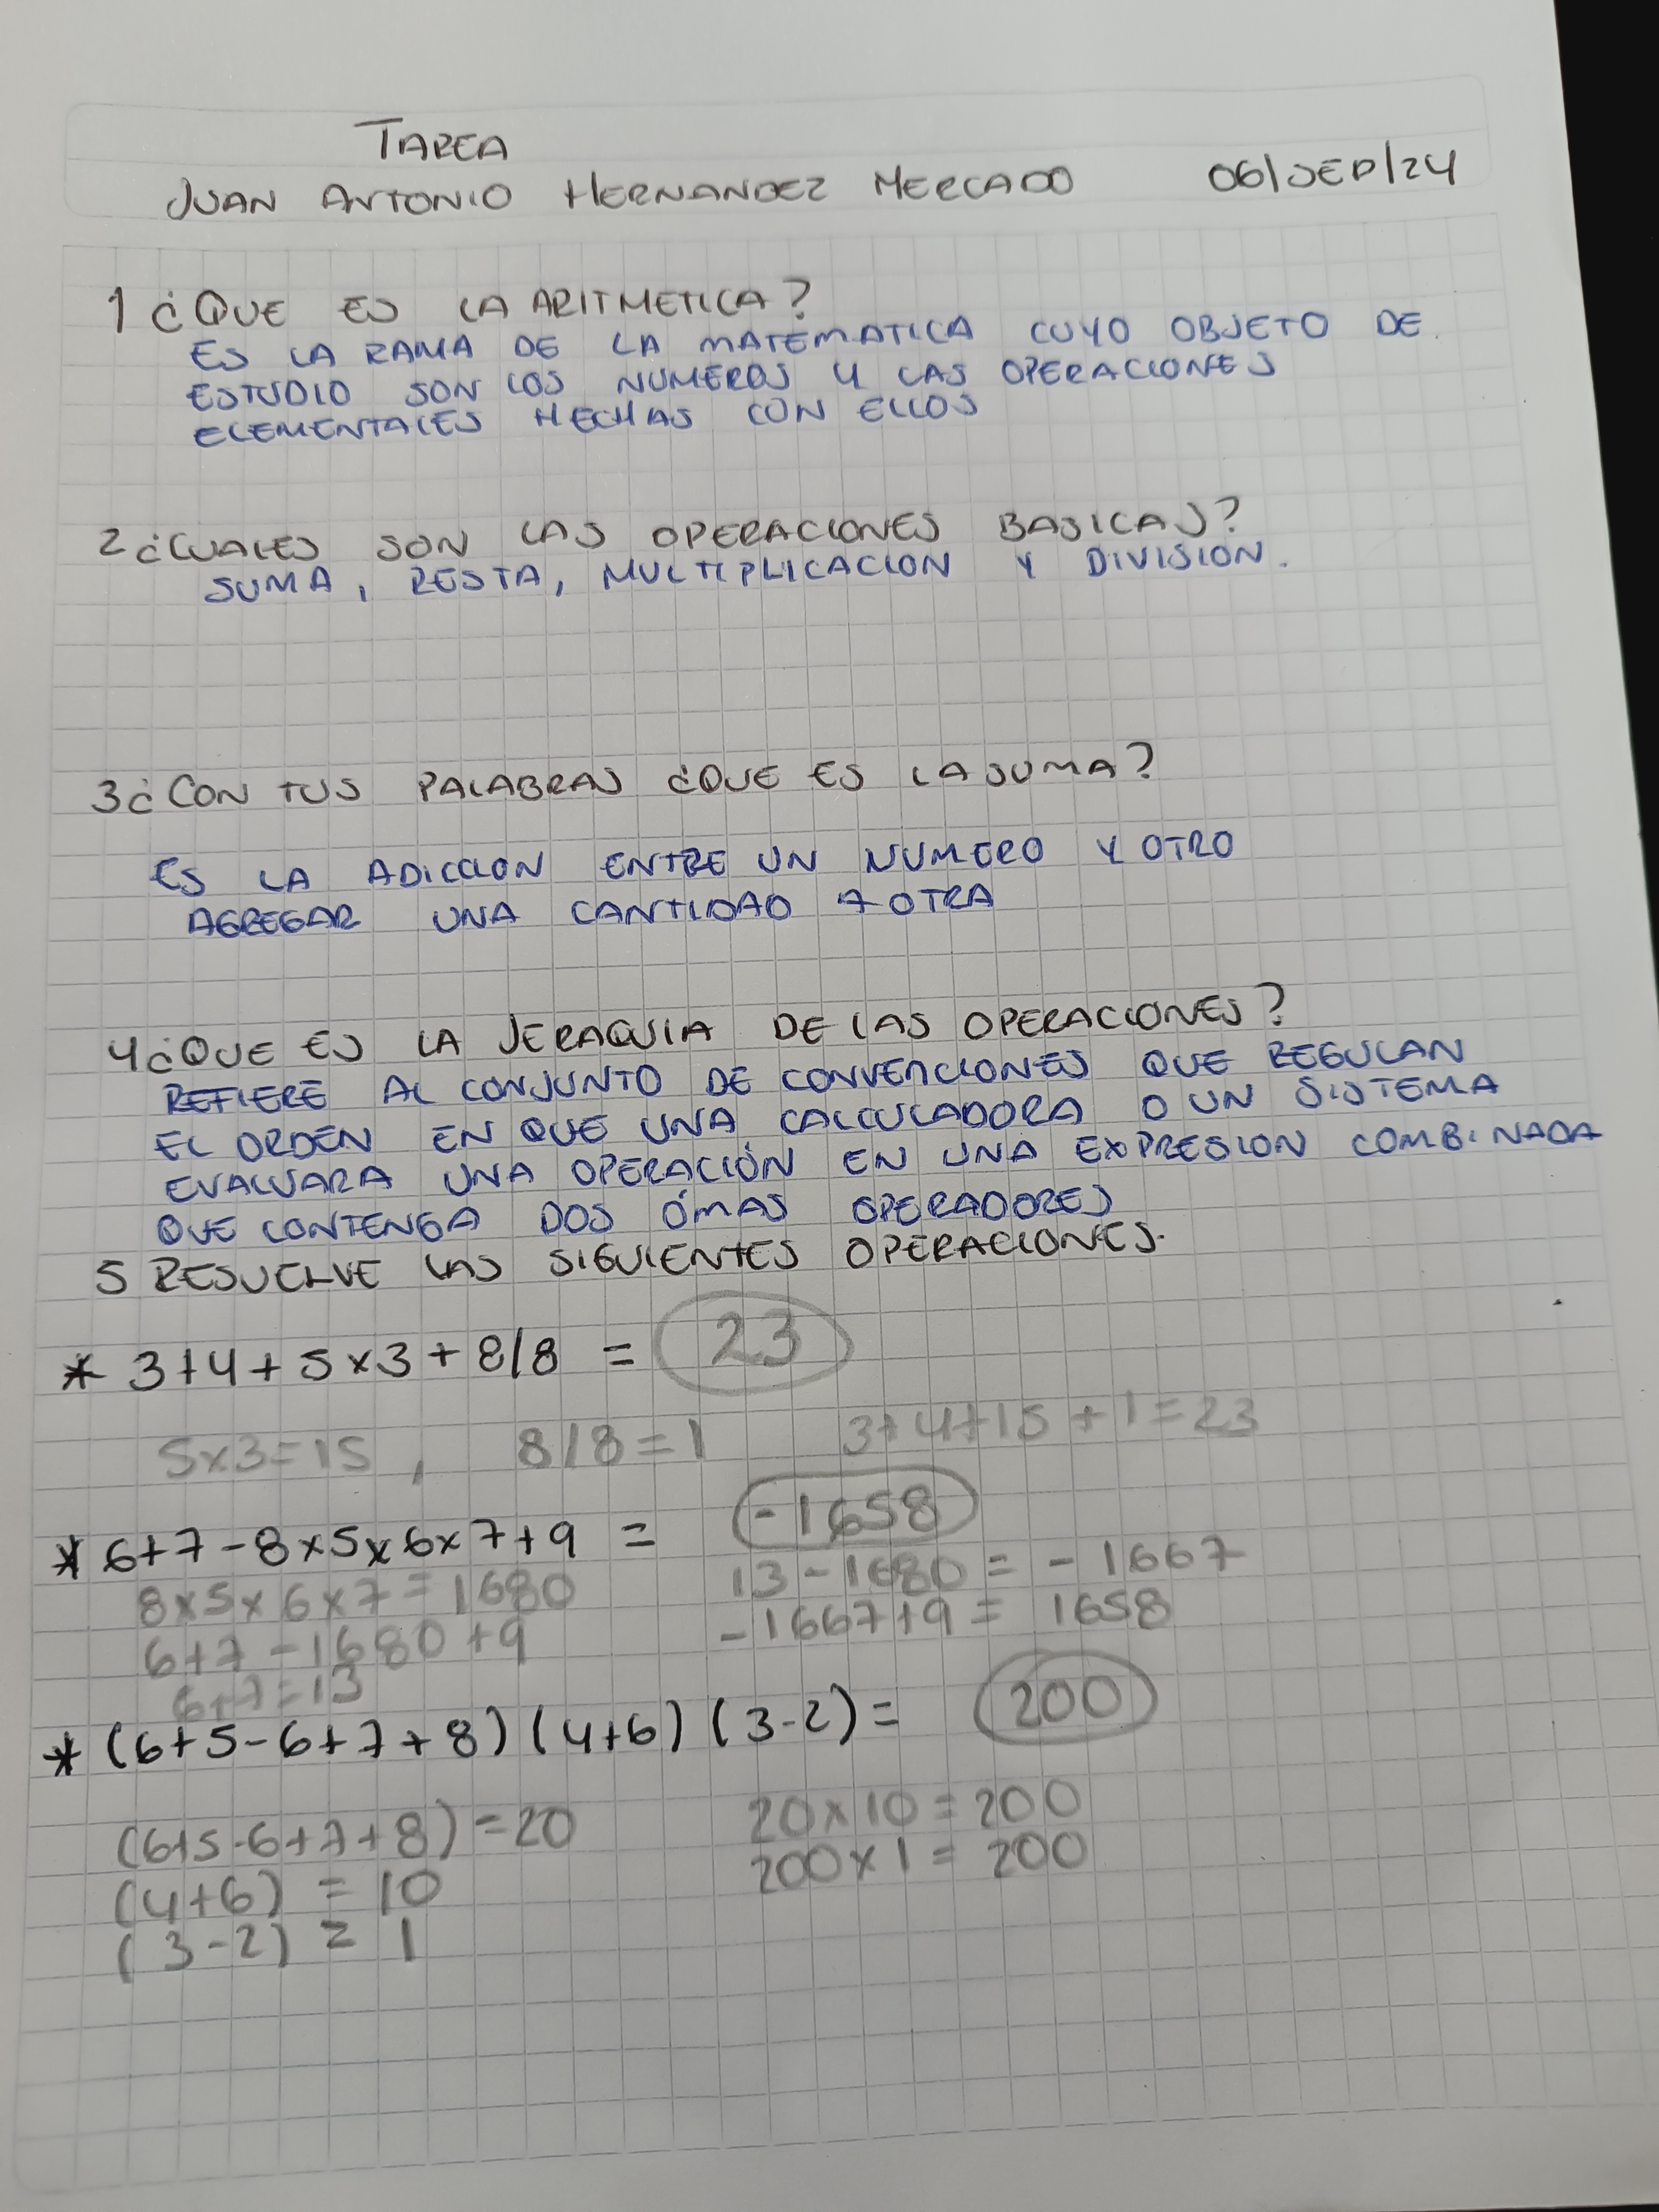 TAREA
JUAN ANTONIO HERNANDEZ MERCADO 06/SEP/24
1 ¿QUE ES LA ARITMETICA?
ES LA RAMA DE LA MATEMATICA CUYO OBJETO DE
ESTUDIO SON LOS NUMEROS Y LAS OPERACIONES
ELEMENTALES HECHAS CON ELLOS
2 ¿CUALES SON LAS OPERACIONES BASICAS?
SUMA, RESTA, MULTIPLICACION Y DIVISION.
3 ¿CON TUS PALABRAS ¿QUE ES LA SUMA?
ES LA ADICCION ENTRE UN NUMERO Y OTRO
AGREGAR UNA CANTIDAD A OTRA
4 ¿QUE ES LA JERAQUIA DE LAS OPERACIONES?
REFIERE AL CONJUNTO DE CONVENCIONES QUE REGULAN
EL ORDEN EN QUE UNA CALCULADORA O UN SISTEMA
EVALUARA UNA OPERACIÓN EN UNA EXPRESION COMBINADA
QUE CONTENGA DOS Ó MAS OPERADORES
5 RESUELVE LAS SIGUIENTES OPERACIONES.
* 3+4+5x3+8/8 = 23
5x3=15, 8/8=1 3+4+15+1=23
* 6+7-8x5x6x7+9 = -1658
8x5x6x7=1680 13-1680 = -1667
6+7-1680+9 -1667+9 = 1658
6+7=13
* (6+5-6+7+8)(4+6)(3-2)= 200
(6+5-6+7+8)=20 20x10=200
(4+6) = 10 200x1=200
(3-2) = 1